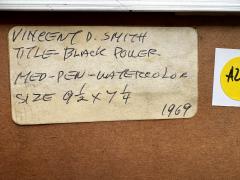 VINCENT D. SMITH
TITLE-BLACK POWER
MED-PEN-WATERCOLOR
SIZE 9 1/2 X 7 1/4
1969